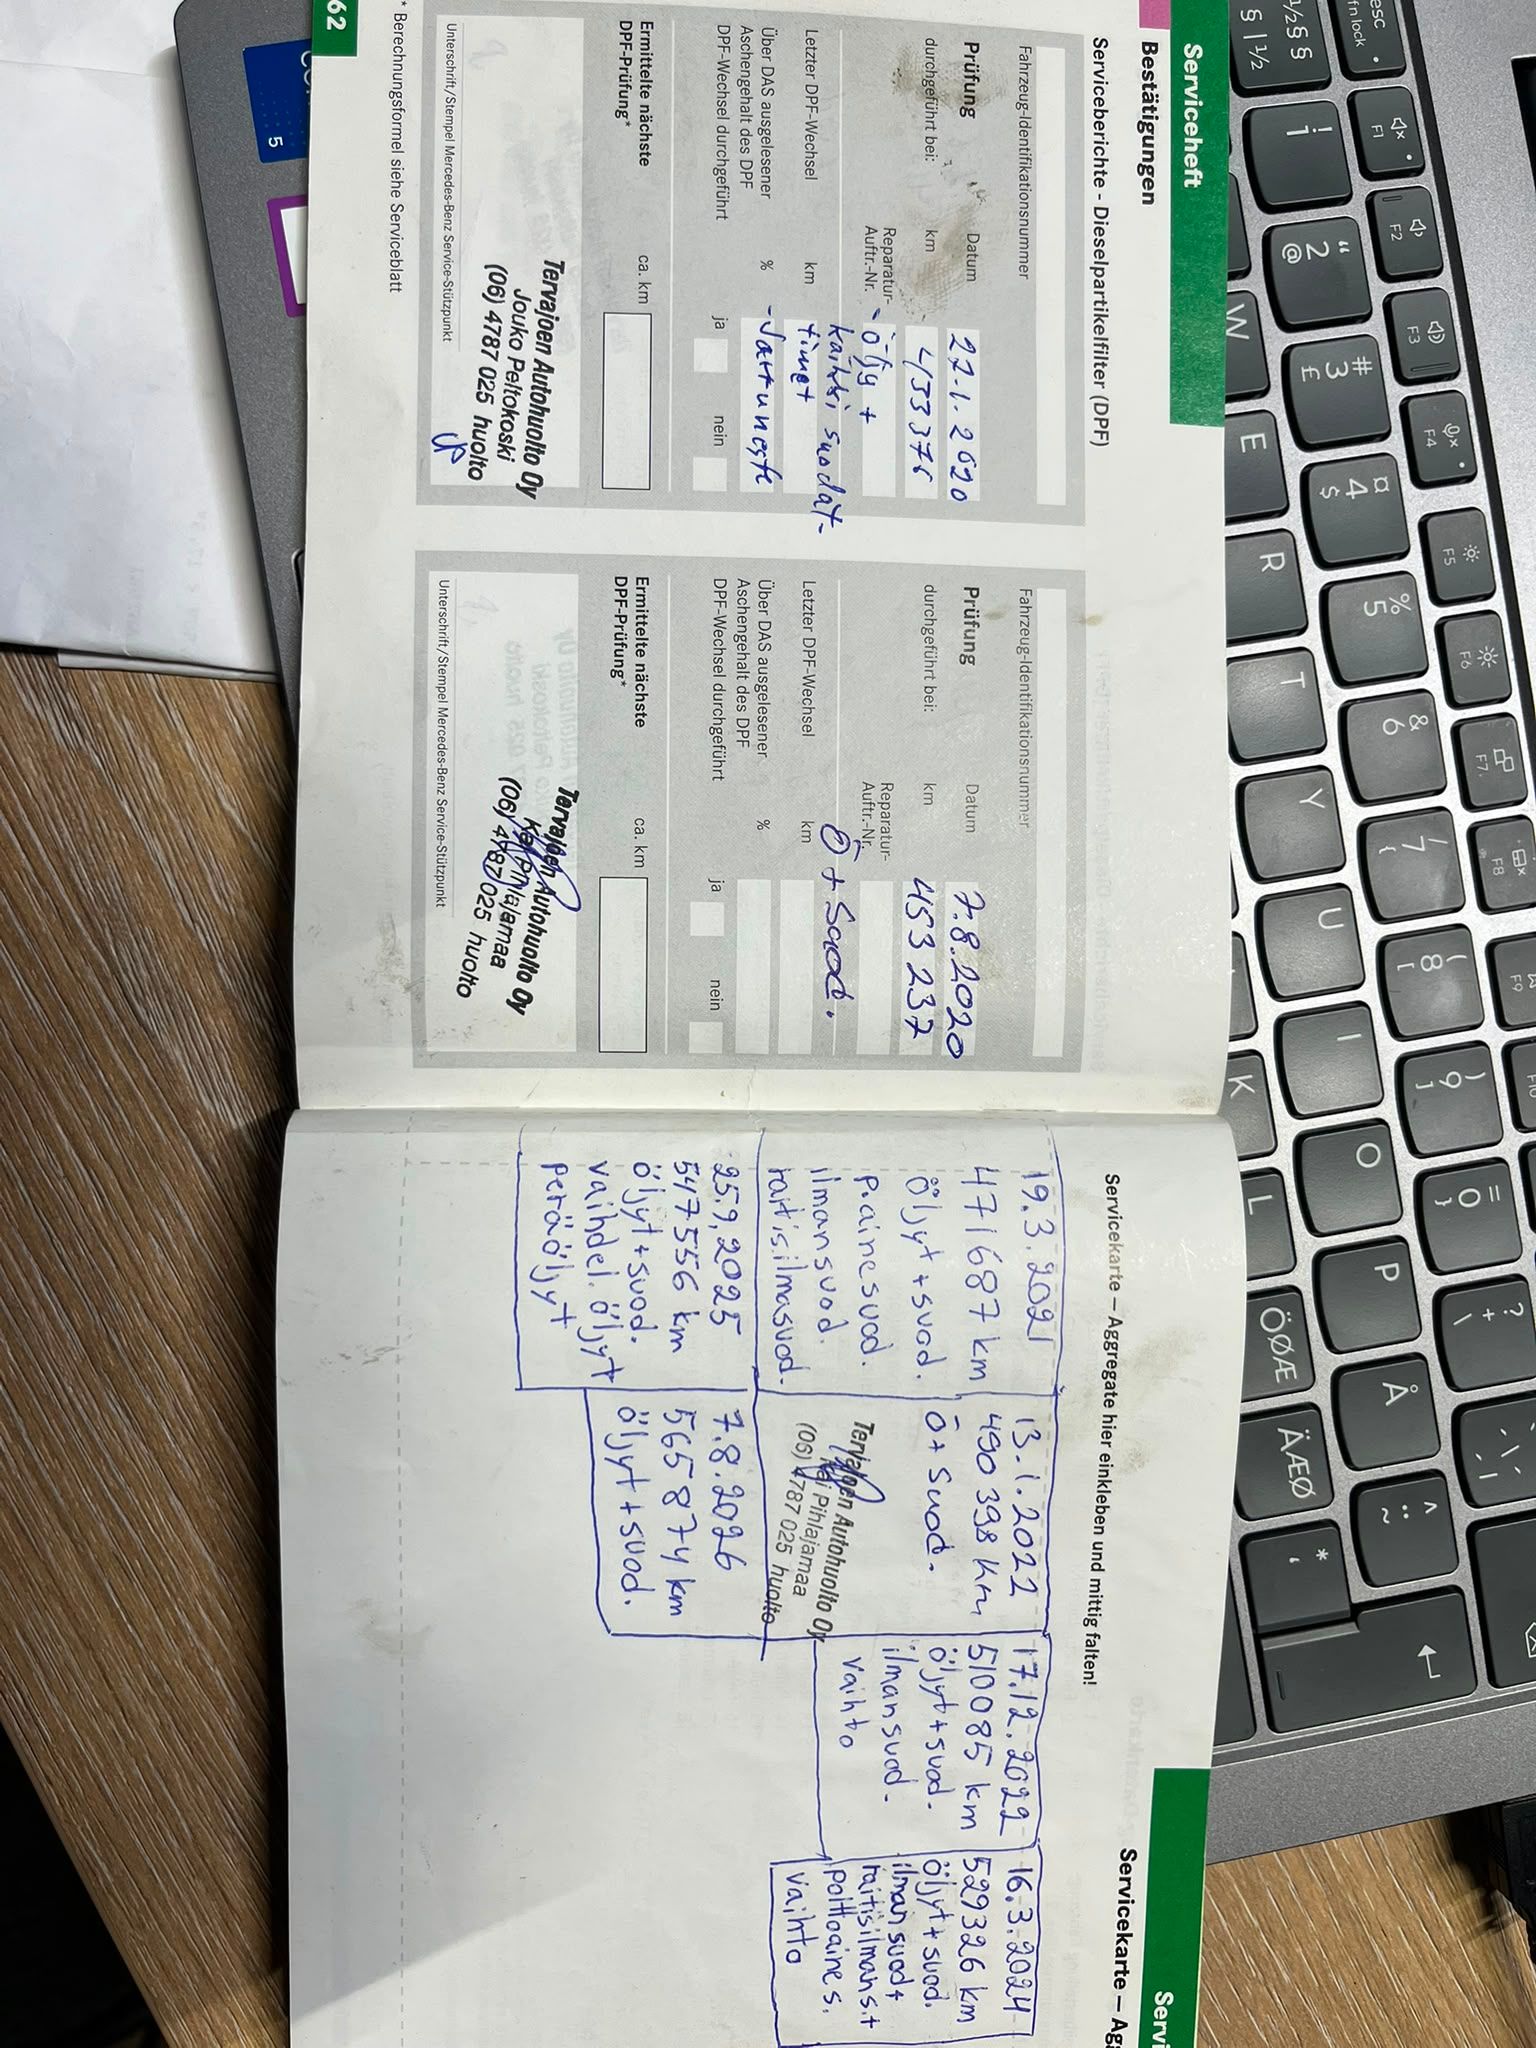 Serviceheft
Bestätigungen
Serviceberichte - Dieselpartikelfilter (DPF)
Fahrzeug-Identifikationsnummer
Prüfung
durchgeführt bei:
Datum
27.1.2020
km
433376
Reparatur-
Auftr.-Nr.
- öljy +
kaikki suodat-
timet
Letzter DPF-Wechsel
km
Über DAS ausgelesener
Aschengehalt des DPF
%
- Jarruneste
DPF-Wechsel durchgeführt
ja
nein
Ermittelte nächste
DPF-Prüfung*
ca. km
Tervajoen Autohuolto Oy
Jouko Peltokoski
(06) 4787 025 huolto
Unterschrift/Stempel Mercedes-Benz Service-Stützpunkt
Fahrzeug-Identifikationsnummer
Prüfung
durchgeführt bei:
Datum
7.8.2020
km
453 237
Reparatur-
Auftr.-Nr.
Ö + Suod.
Letzter DPF-Wechsel
km
Über DAS ausgelesener
Aschengehalt des DPF
%
DPF-Wechsel durchgeführt
ja
nein
Ermittelte nächste
DPF-Prüfung*
ca. km
Tervajoen Autohuolto Oy
Kai Pihlajamaa
(06) 4787 025 huolto
Unterschrift/Stempel Mercedes-Benz Service-Stützpunkt
* Berechnungsformel siehe Serviceblatt
62
Servicekarte – Aggregate hier einkleben und mittig falten!
19.3.2021
471687 km
Öljyt + suod.
p.ainesuod.
ilmansuod.
raitis.ilmasuod.
13.1.2022
490 398 km
Ö + Suod.
Tervajoen Autohuolto Oy
Kai Pihlajamaa
(06) 4787 025 huolto
17.12.2022
510085 km
öljyt + suod.
ilmansuod.
vaihto
16.3.2024
529326 km
öljyt + suod.
ilmansuod +
raitisilmans. +
polttoaines.
vaihto
25.9.2025
547556 km
öljyt + suod.
vaihdel. öljyt
peräöljyt
7.8.2026
565 874 km
öljyt + suod.
Servicekarte – Ag
Servi
esc
fn lock
F1
F2
F3
F4
F5
F6
F7
F8
F9
F10
1
2
3
4
5
6
7
8
9
0
W
E
R
T
Y
U
I
O
P
Å
K
L
ÖØÆ
ÄÆØ
5